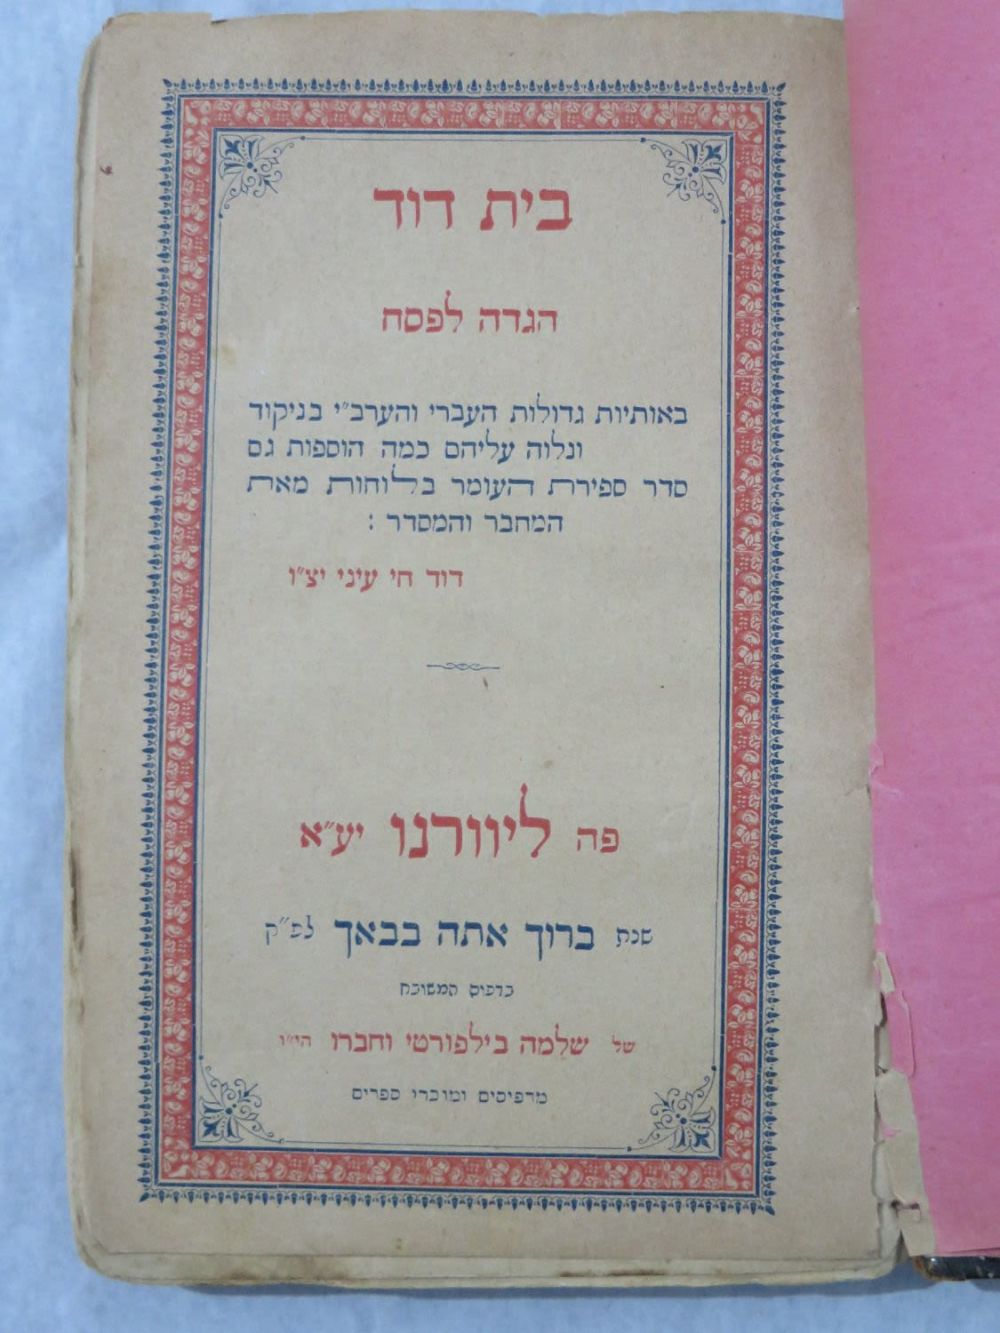 בית דוד
הגדה לפסח
באותיות גדולות העברי והערב״י בניקוד
ונלוה עליהם כמה הוספות גם
סדר ספירת העומר בלוחות מאת
המחבר והמסדר :
דוד חי עיני יצ״ו
פה ליוורנו יע״א
שנת ברוך אתה בבאך לפ״ק
בדפוס המשובח
של שלמה בילפורטי וחברו הי״ו
מדפיסים ומוכרי ספרים